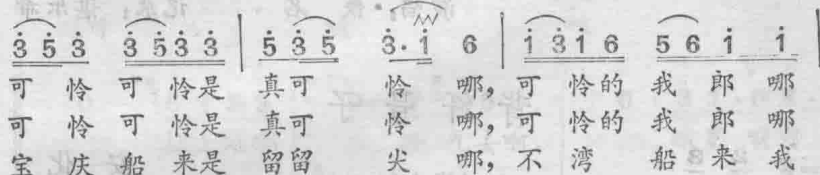 3̇ 5̇ 3̇ 3̇ 5̇ 3̇ 3̇ | 5̇ 3̇ 5̇ 3̇· 1̇ 6 | 1̇ 3̇ 1̇ 6 5 6 1̇ 1̇ |
可 怜 可 怜是 真可 怜 哪, 可 怜的 我 郎 哪
可 怜 可 怜是 真可 怜 哪, 可 怜的 我 郎 哪
宝 庆 船 来是 留留 尖 哪, 不 湾 船 来 我